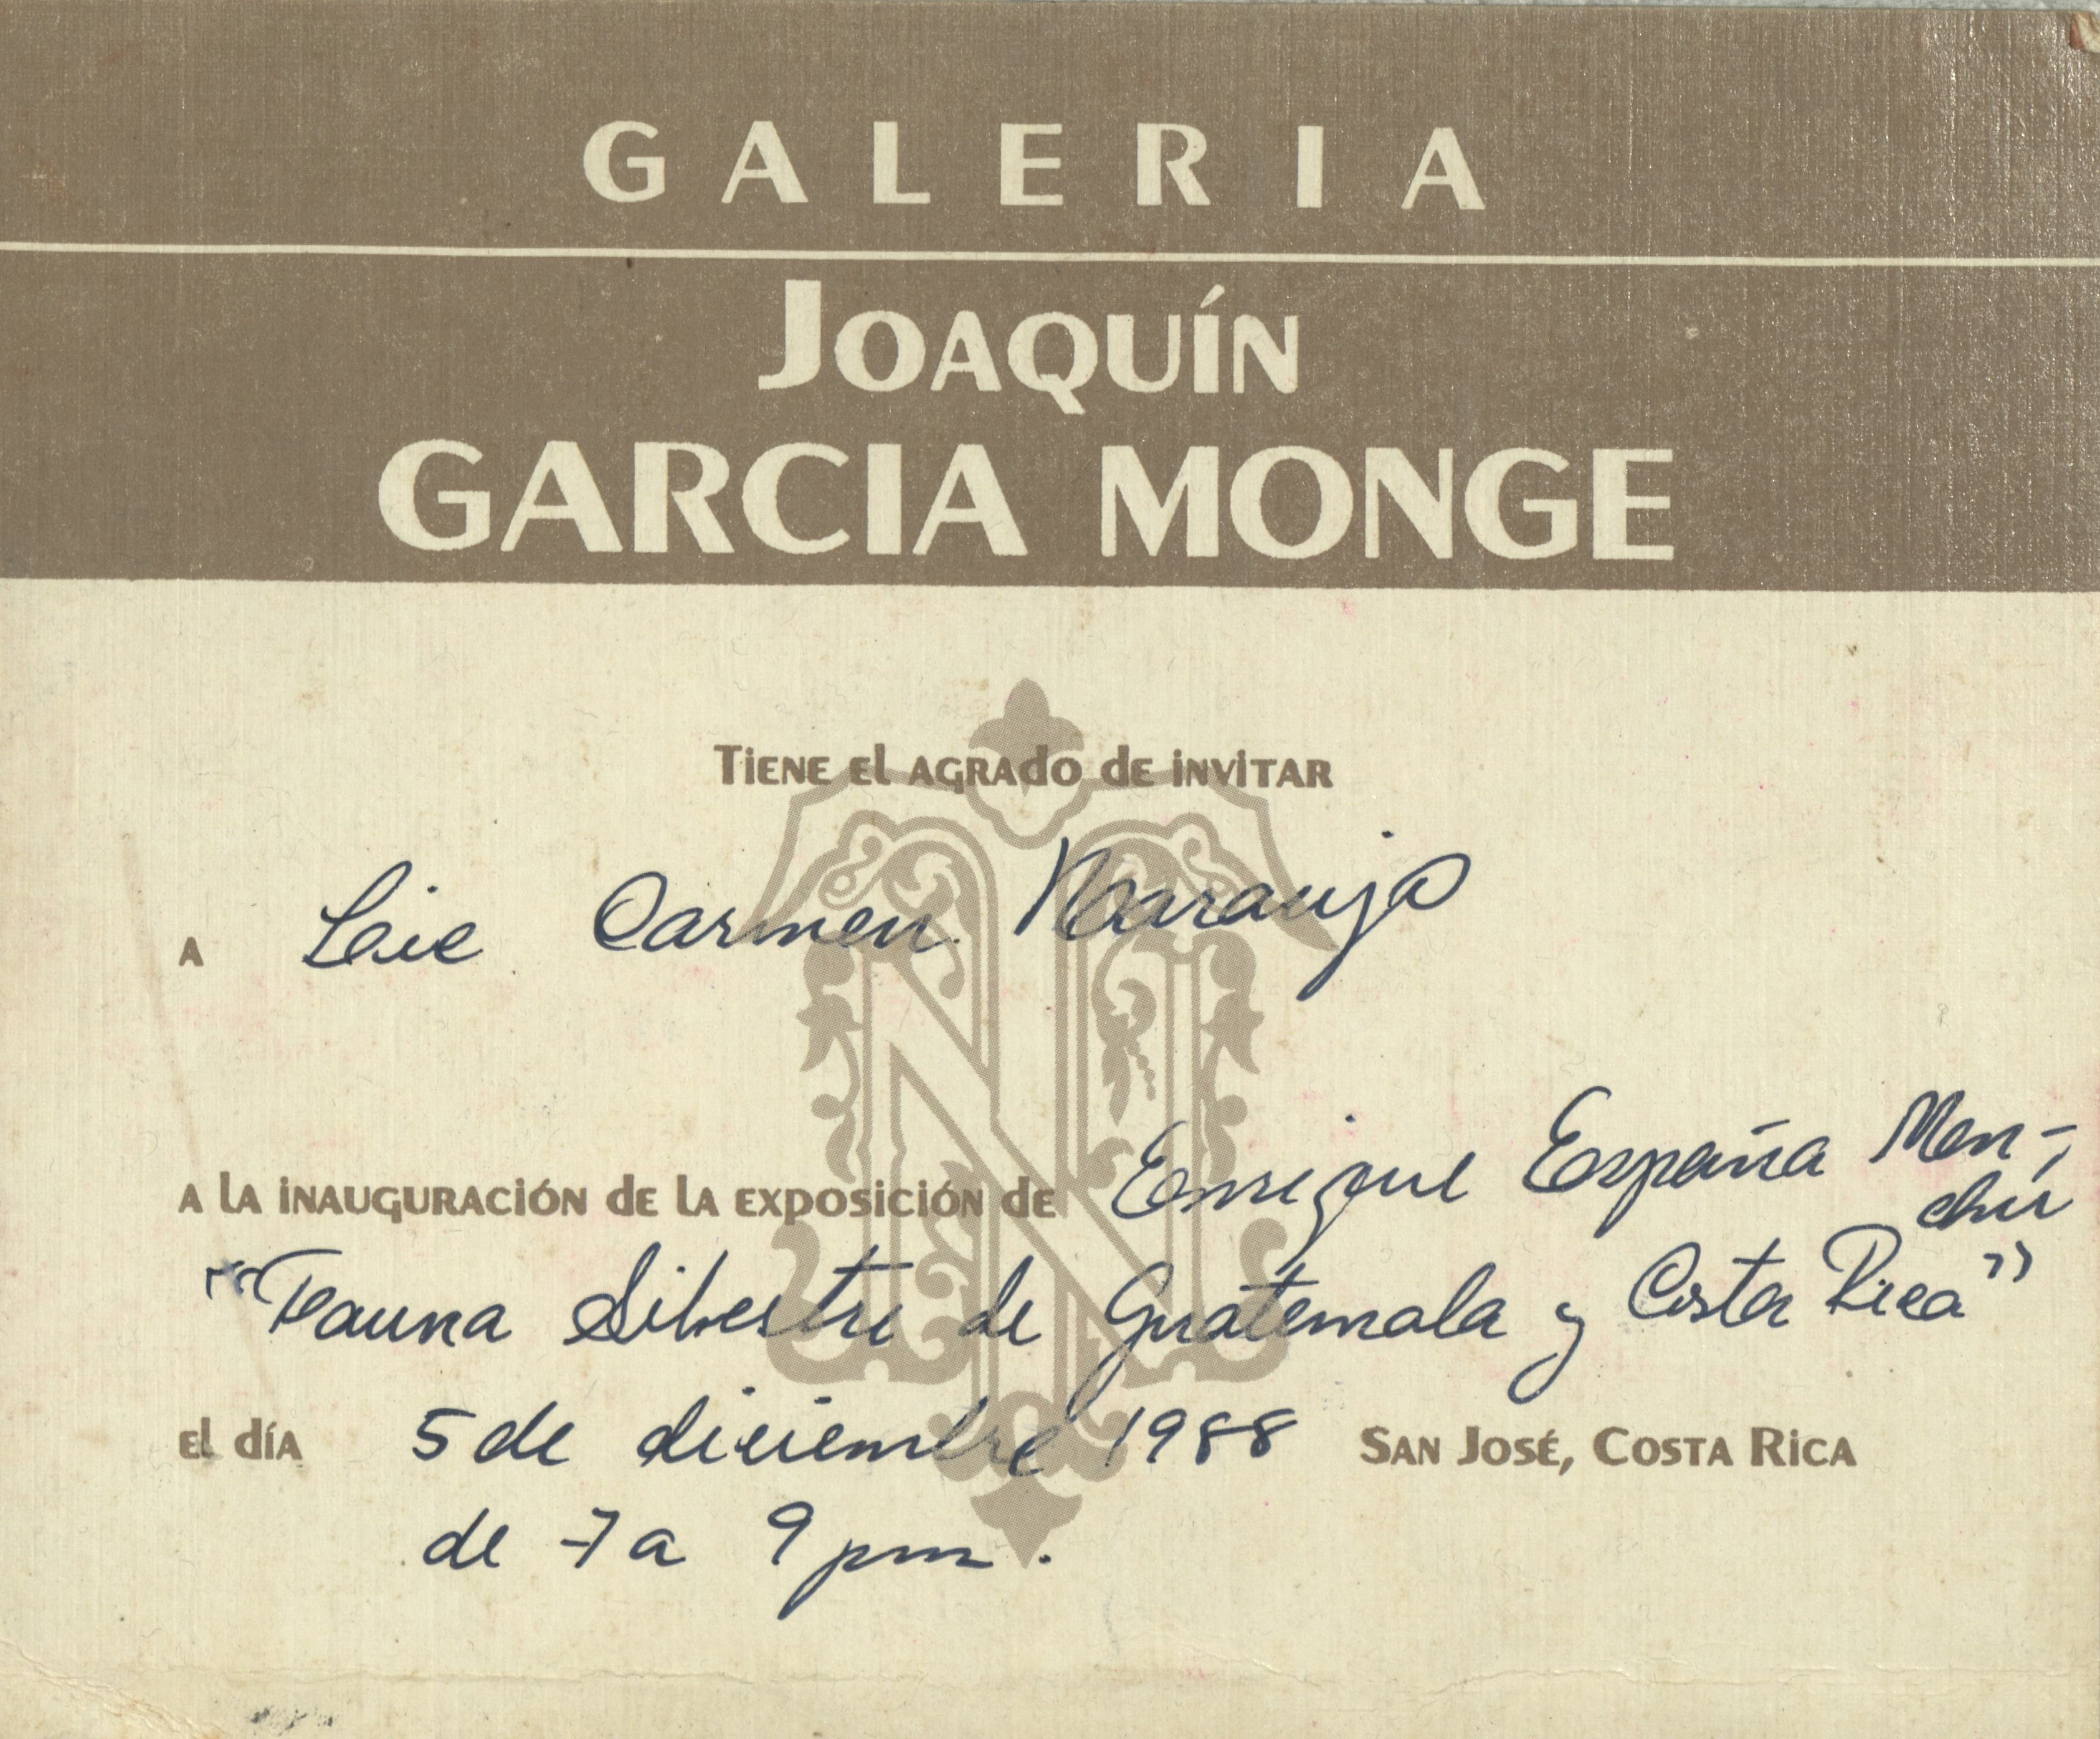 GALERIA
JOAQUÍN
GARCIA MONGE
TIENE EL AGRADO DE INVITAR
A Lic Carmen Naranjo
A LA INAUGURACIÓN DE LA EXPOSICIÓN DE Enrique España Men-
chú
"Fauna Silvestre de Guatemala y Costa Rica"
EL DÍA 5 de diciembre 1988 SAN JOSÉ, COSTA RICA
de 7 a 9 pm.